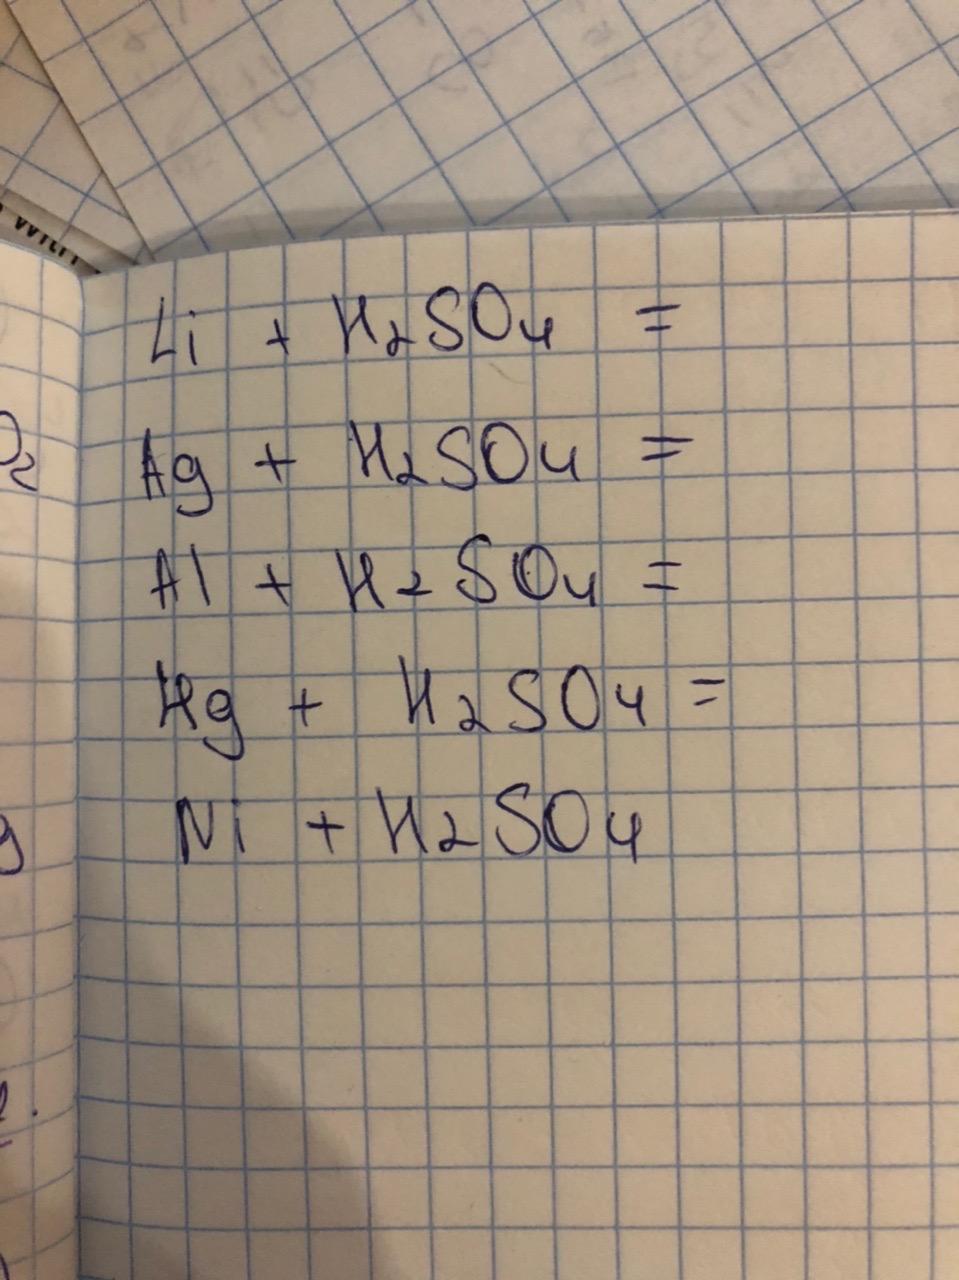 with
Li + H₂SO₄ =
O₂
Ag + H₂SO₄ =
Al + H₂SO₄ =
Hg + H₂SO₄ =
Ni + H₂SO₄